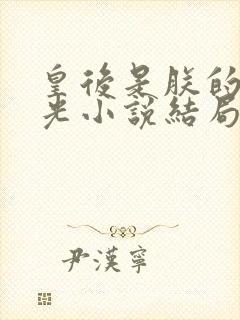 皇後是朕的
光小說結局
尹漢寧